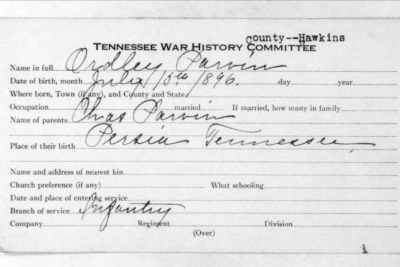 County--Hawkins
TENNESSEE WAR HISTORY COMMITTEE
Name in full Ordley Parvin
Date of birth, month July 15th 1896. day year
Where born, Town (if any), and County and State
Occupation married. If married, how many in family
Name of parents Chas Parvin
Place of their birth Persia Tennessee
Name and address of nearest kin
Church preference (if any) What schooling
Date and place of entering service
Branch of service Infantry
Company Regiment Division
(Over)